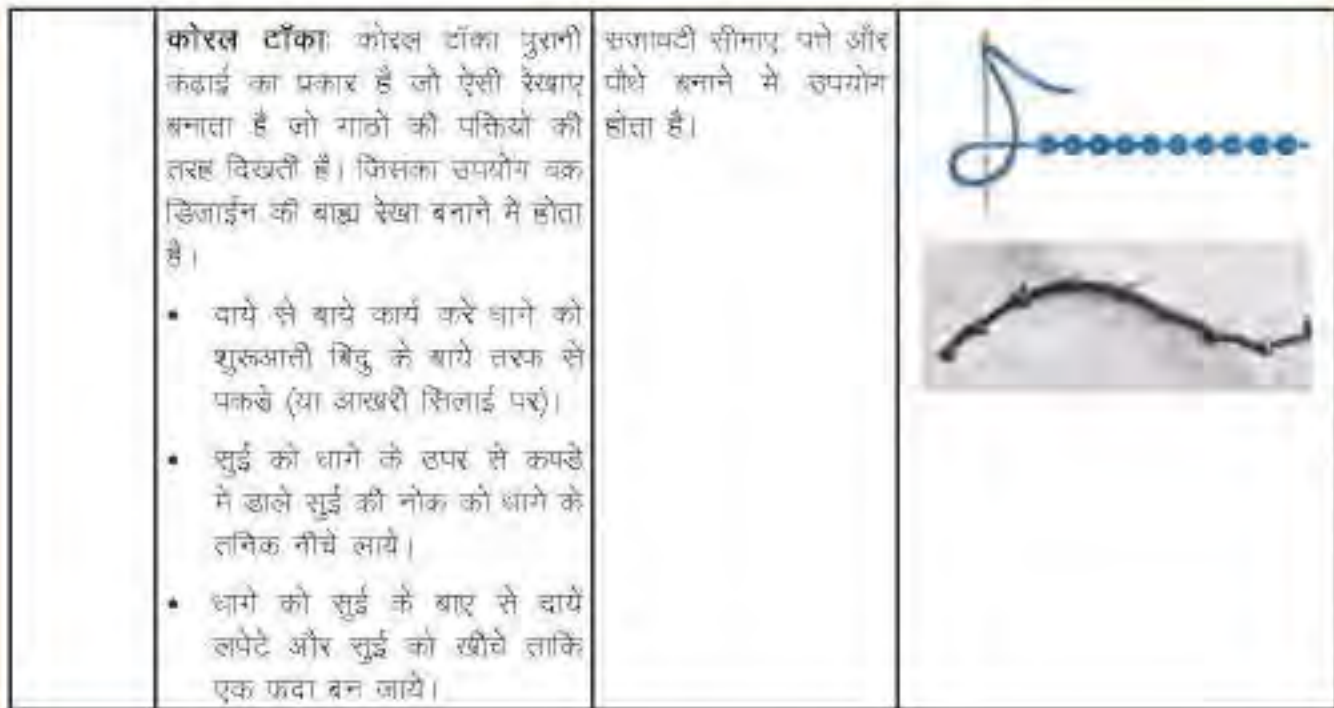 कोरल टॉका: कोरल टॉका पुरानी
कढाई का प्रकार है जो ऐसी रेखाए
बनाता है जो गाठो की पक्तियो की
तरह दिखती है। जिसका उपयोग वक्र
डिजाईन की बाह्य रेखा बनाने मे होता
है।
• दाये से बाये कार्य करे धागे को
शुरूआती बिदु के बाये तरफ से
पकडे (या आखरी सिलाई पर)।
• सुई को धागे के उपर से कपडे
मे डाले सुई की नोक को धागे के
तनिक नीचे लाये।
• धागे को सुई के बाए से दाये
लपेटे और सुई को खीचे ताकि
एक फदा बन जाये।
सजावटी सीमाए पत्ते और
पौधे बनाने मे उपयोग
होता है।